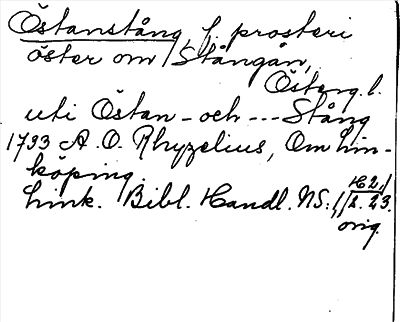 Östanstång, f. prosteri
öster om Stångån,
Österg. l.
uti Östan - och --- Stång
1733 A. O. Rhyzelius, Om Lin-
köping.
Link. Bibl. Handl. NS: 1, H 2, s. 23.
orig.